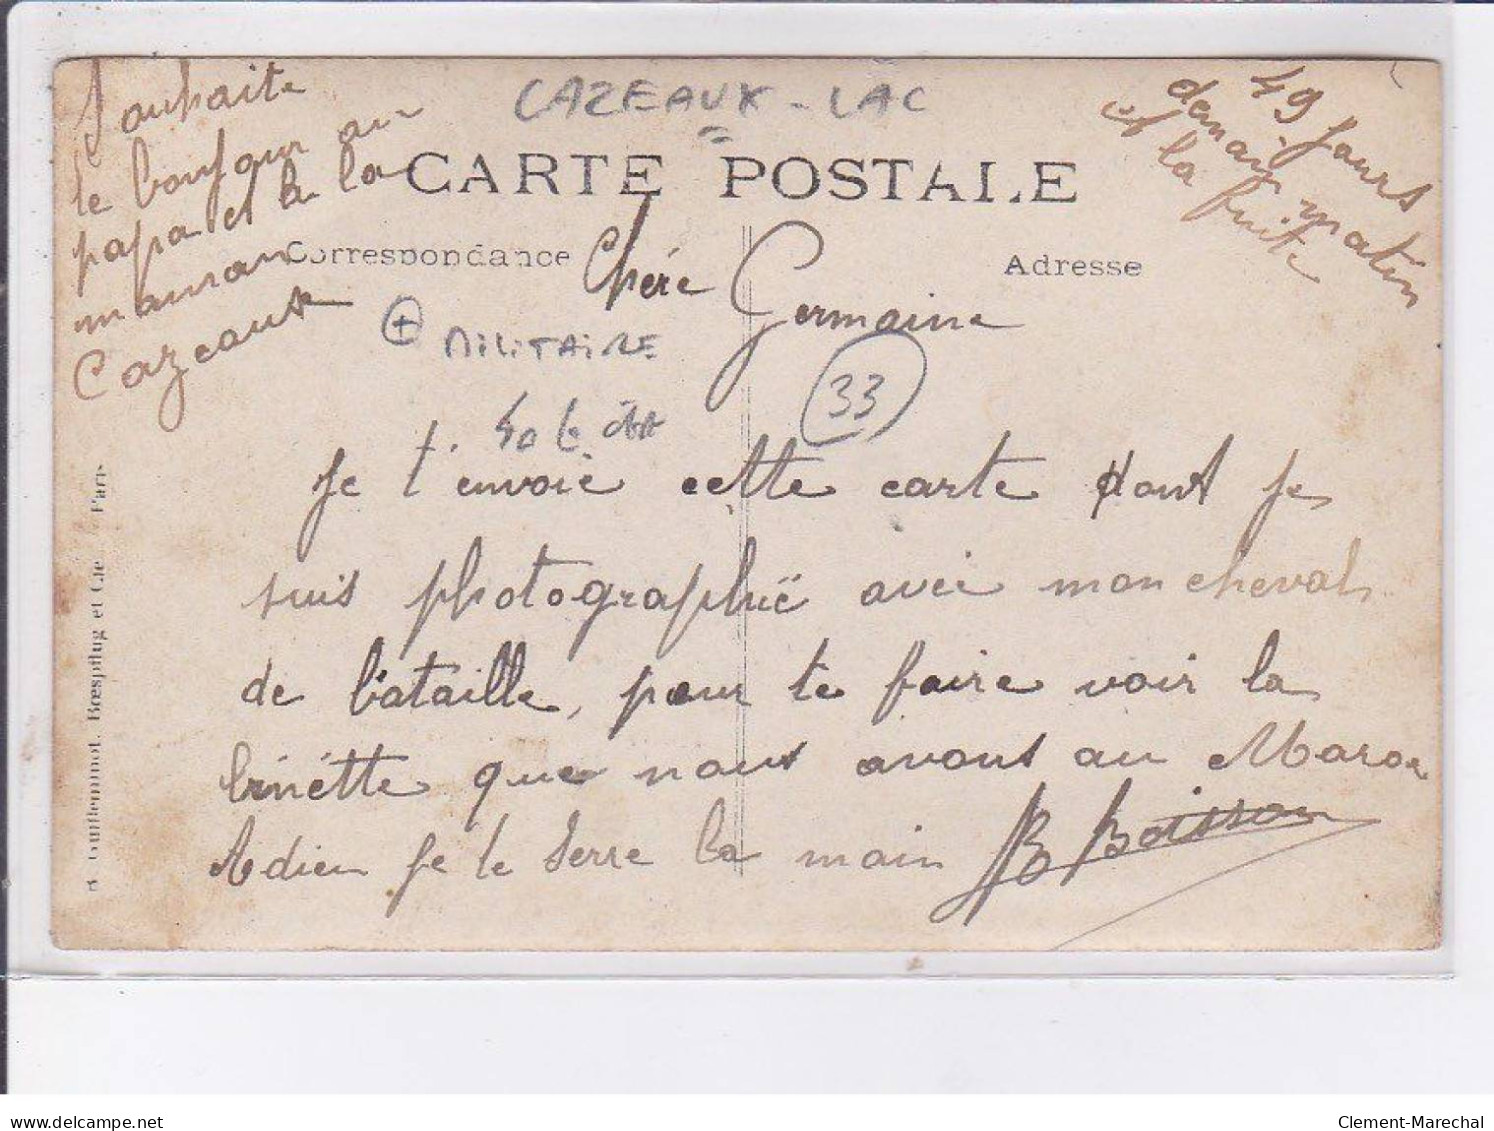 Souhaite
le bonjour au
papa et a la
maman
Cazeaux
CAZEAUX - LAC
49 jours
demain matin
et la fuite
CARTE POSTALE
Correspondance
Adresse
Chére Germaine
MiLiTAiRE
33
Je t'envoie cette carte dont je
suis photographië avec mon cheval
de bataille, pour te faire voir la
binétte que nous avons au Maroc
Adieu je te serre la main
B Boisson
Guilleminot, Bœspflug et Cie Paris
delcampe.net
Clement-Marechal